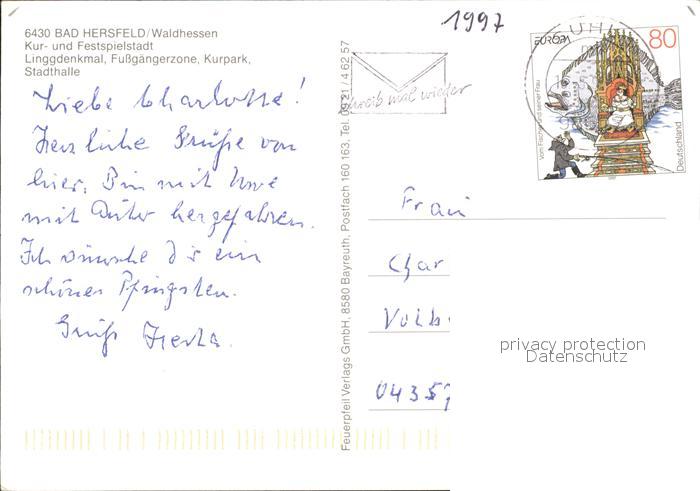 6430 BAD HERSFELD/Waldhessen
Kur- und Festspielstadt
Linggdenkmal, Fußgängerzone, Kurpark,
Stadthalle
Liebe Charlotte!
Herzliche Grüße von
hier. Bin mit Uwe
mit Auto hergefahren.
Ich wünsche dir ein
schönes Pfingsten.
Gruß Herta.
Feuerpfeil Verlags GmbH, 8580 Bayreuth, Postfach 160 163, Tel. 0921/4 62 57
1997
schreib mal wieder
UHL
EUROPA
80
Vom Fischer und seiner Frau
Deutschland
Frau
Char
Volb
0435
privacy protection
Datenschutz